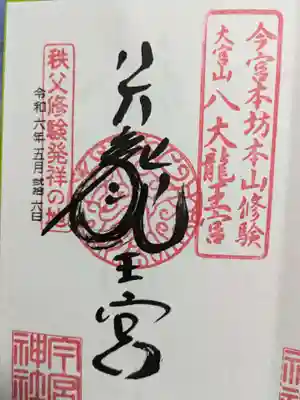 今宮本坊本山修験
大宮山 八大龍王宮
八大龍王宮
秩父修験発祥の地
令和六年五月弐拾六日
今宮
神社